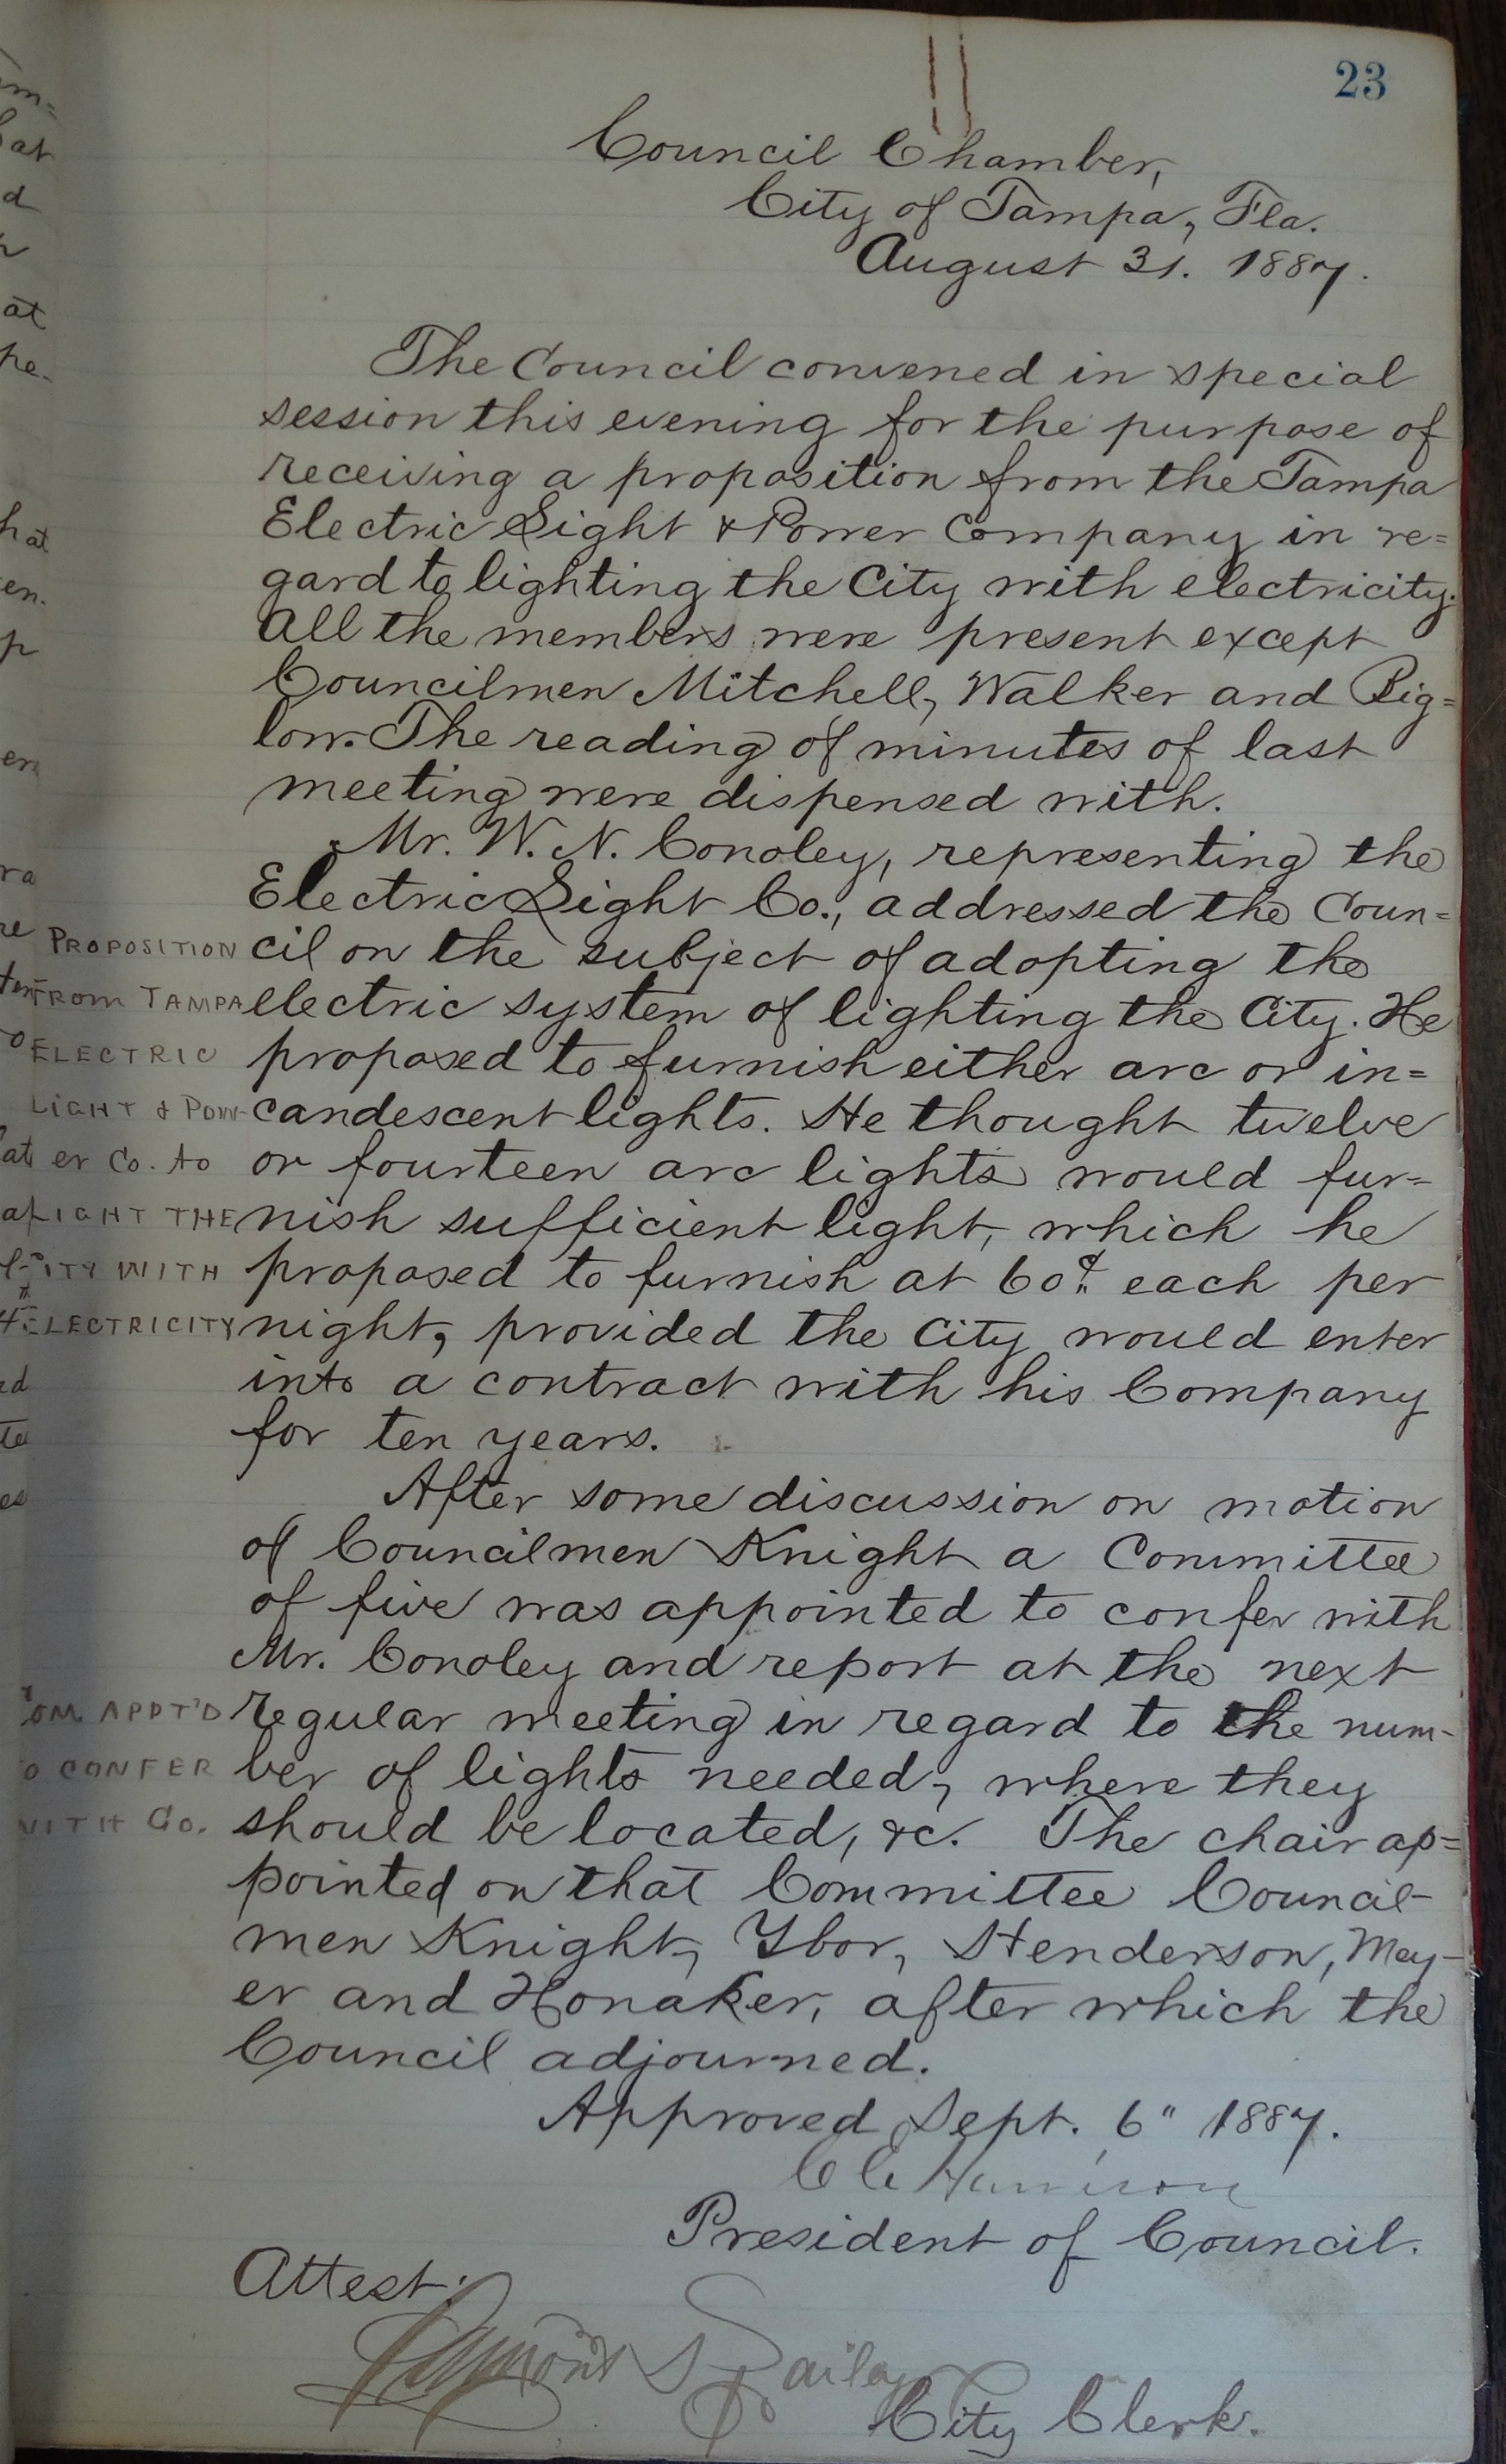 23
Council Chamber,
City of Tampa, Fla.
August 31. 1887.
The Council convened in special
session this evening for the purpose of
receiving a proposition from the Tampa
Electric Light & Power Company in re=
gard to lighting the City with electricity.
All the members were present except
Councilmen Mitchell, Walker and Big=
low. The reading of minutes of last
meeting were dispensed with.
Mr. W. N. Conoley, representing the
Electric Light Co., addressed the Coun=
cil on the subject of adopting the
electric system of lighting the City. He
proposed to furnish either arc or in=
candescent lights. He thought twelve
or fourteen arc lights would fur=
nish sufficient light, which he
proposed to furnish at 60¢ each per
night, provided the City would enter
into a contract with his Company
for ten years.
After some discussion on motion
of Councilmen Knight a Committee
of five was appointed to confer with
Mr. Conoley and report at the next
regular meeting in regard to the num-
ber of lights needed, where they
should be located, &c. The chair ap=
pointed on that Committee Council-
men Knight, Ybor, Henderson, May-
er and Honaker, after which the
Council adjourned.
Approved Sept. 6" 1887.
C C Harrison
President of Council.
Attest:
City Clerk.
PROPOSITION
FROM TAMPA
ELECTRIC
LIGHT & POW-
er Co. to
LIGHT THE
CITY WITH
ELECTRICITY
COM. APPT'D
TO CONFER
WITH Co.